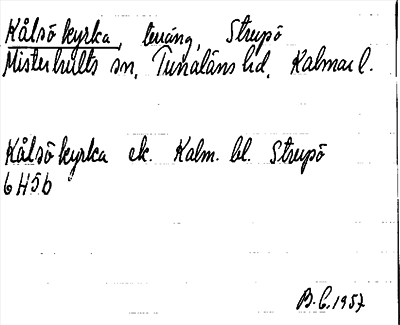 Kålsö kyrka, teräng, Strupö
Misterhults sn, Tunaläns hd, Kalmar l.
Kålsö kyrka ek. Kalm. bl. Strupö
6H5b
B.C. 1957